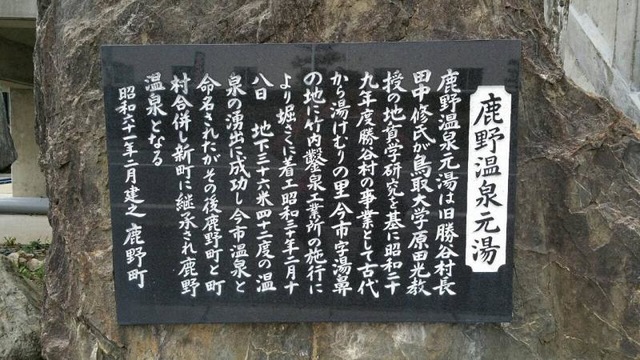 鹿野温泉元湯
鹿野温泉元湯は旧勝谷村長
田中修氏が鳥取大学原田光教
授の地質学研究を基に昭和二十
九年度勝谷村の事業として古代
から湯けむりの里今市字湯鼻
の地に竹内鑿泉工業所の施行に
より堀さくに着工昭和三十年二月十
八日 地下三十六米四十二度の温
泉の湧出に成功し今市温泉と
命名されたがその後鹿野町と町
村合併し新町に継承され鹿野
温泉となる
昭和六十二年二月建之 鹿野町